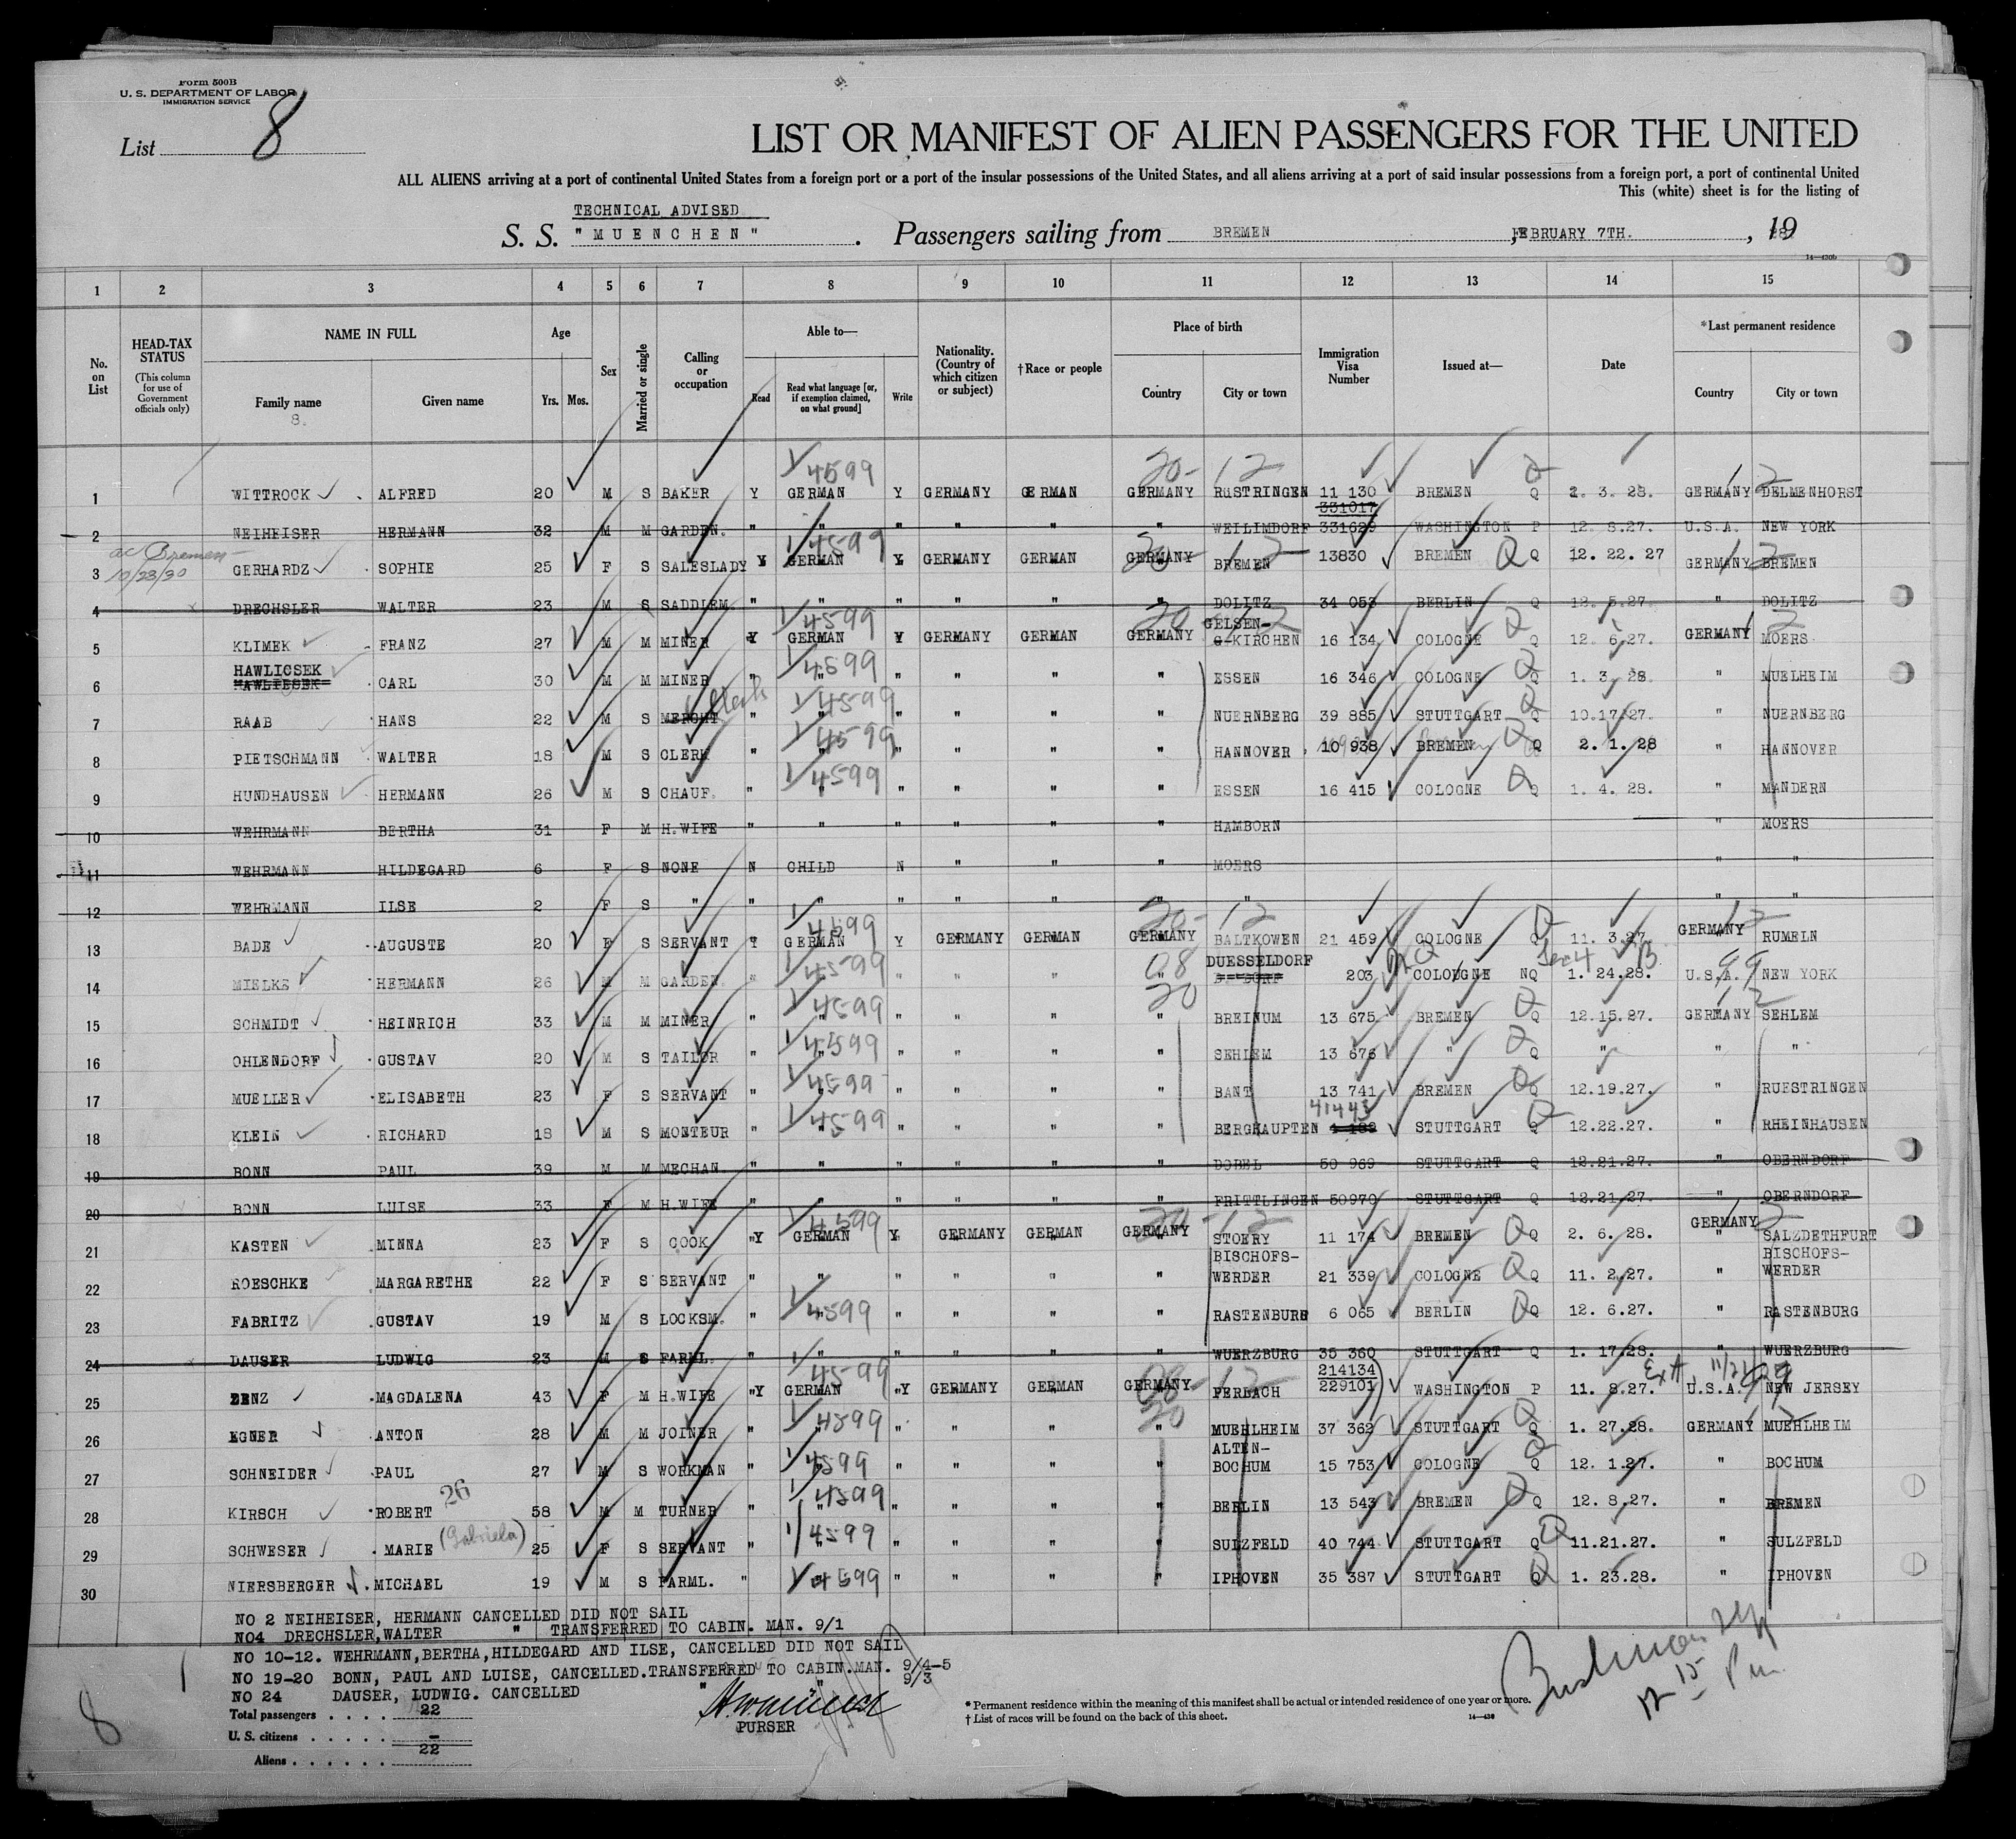 Form 500B
U. S. DEPARTMENT OF LABOR
IMMIGRATION SERVICE
List 8
LIST OR MANIFEST OF ALIEN PASSENGERS FOR THE UNITED
ALL ALIENS arriving at a port of continental United States from a foreign port or a port of the insular possessions of the United States, and all aliens arriving at a port of said insular possessions from a foreign port, a port of continental United
This (white) sheet is for the listing of
TECHNICAL ADVISED
S. S. "MUENCHEN". Passengers sailing from BREMEN, FEBRUARY 7TH., 1928
14—430b
1 2 3 4 5 6 7 8 9 10 11 12 13 14 15
No. on List HEAD-TAX STATUS (This column for use of Government officials only) NAME IN FULL Family name Given name Age Yrs. Mos. Sex Married or single Calling or occupation Able to— Read Read what language [or, if exemption claimed, on what ground] Write Nationality. (Country of which citizen or subject) †Race or people Place of birth Country City or town Immigration Visa Number Issued at— Date *Last permanent residence Country City or town
8.
1/4599 20-12 Q 12
1 WITTROCK ALFRED 20 M S BAKER Y GERMAN Y GERMANY GERMAN GERMANY RUSTRINGEN 11 130 BREMEN Q 2. 3. 28. GERMANY DELMENHORST
331017
2 NEIHEISER HERMANN 32 M M GARDEN. " " " " " " WEILIMDORF 331629 WASHINGTON P 12. 8.27. U.S.A. NEW YORK
ac Bremen 10/23/30
3 GERHARDZ SOPHIE 25 F S SALESLADY Y GERMAN Y GERMANY GERMAN GERMANY BREMEN 13830 BREMEN Q Q 12. 22. 27 GERMANY BREMEN
4 DRECHSLER WALTER 23 M S SADDLEM. " " " " " " DOLITZ 34 053 BERLIN Q 12. 5.27. " DOLITZ
GELSEN-
5 KLIMEK FRANZ 27 M M MINER Y GERMAN Y GERMANY GERMAN GERMANY G-KIRCHEN 16 134 COLOGNE Q 12. 6.27. GERMANY MOERS
HAWLICSEK
6 CARL 30 M M MINER " " " " " " ESSEN 16 346 COLOGNE Q 1. 3. 28. " MUELHEIM
7 RAAB HANS 22 M S MERCHT " " " " " " NUERNBERG 39 885 STUTTGART Q 10.17.27. " NUERNBERG
8 PIETSCHMANN WALTER 18 M S CLERK " " " " " " HANNOVER 10 938 BREMEN Q 2. 1. 28 " HANNOVER
9 HUNDHAUSEN HERMANN 26 M S CHAUF. " " " " " " ESSEN 16 415 COLOGNE Q 1. 4. 28. " MANDERN
10 WEHRMANN BERTHA 31 F M H.WIFE " " " " " " HAMBORN " MOERS
11 WEHRMANN HILDEGARD 6 F S NONE N CHILD N " " " MOERS " "
12 WEHRMANN ILSE 2 F S " " " " " " " " " "
13 BADE AUGUSTE 20 F S SERVANT Y GERMAN Y GERMANY GERMAN GERMANY BALTKOWEN 21 459 COLOGNE Q 11. 3.27. GERMANY RUMELN
DUESSELDORF
14 MIELKE HERMANN 26 M M GARDEN. " " " " " " D-DORF 203 COLOGNE NQ 1. 24.28. U.S.A. NEW YORK
15 SCHMIDT HEINRICH 33 M M MINER " " " " " " BREINUM 13 675 BREMEN Q 12.15.27. GERMANY SEHLEM
16 OHLENDORF GUSTAV 20 M S TAILOR " " " " " " SEHLEM 13 676 " Q " " "
17 MUELLER ELISABETH 23 F S SERVANT " " " " " " BANT 13 741 BREMEN Q 12.19.27. " RUESTRINGEN
41443
18 KLEIN RICHARD 18 M S MONTEUR " " " " " " BERGHAUPTEN STUTTGART Q 12.22.27. " RHEINHAUSEN
19 BONN PAUL 39 M M MECHAN. " " " " " " DOBEL 50 969 STUTTGART Q 12.21.27. " OBERNDORF
20 BONN LUISE 33 F M H.WIFE " " " " " " FRITTLINGEN 50970 STUTTGART Q 12.21.27. " OBERNDORF
21 KASTEN MINNA 23 F S COOK Y GERMAN Y GERMANY GERMAN GERMANY STOERY 11 174 BREMEN Q 2. 6. 28. GERMANY SALZDETHFURT
BISCHOFS- BISCHOFS-
22 ROESCHKE MARGARETHE 22 F S SERVANT " " " " " " WERDER 21 339 COLOGNE Q 11. 2.27. " WERDER
23 FABRITZ GUSTAV 19 M S LOCKSM. " " " " " " RASTENBURG 6 065 BERLIN Q 12. 6.27. " RASTENBURG
24 DAUSER LUDWIG 23 M S FARML. " " " " " " WUERZBURG 35 360 STUTTGART Q 1. 17.28. " WUERZBURG
214134
25 ZENZ MAGDALENA 43 F M H.WIFE "Y GERMAN "Y GERMANY GERMAN GERMANY PERLACH 229101 WASHINGTON P 11. 8.27. U.S.A. NEW JERSEY
26 EGNER ANTON 28 M M JOINER " " " " " " MUEHLHEIM 37 362 STUTTGART Q 1. 27.28. GERMANY MUEHLHEIM
ALTEN-
27 SCHNEIDER PAUL 27 M S WORKMAN " " " " " " BOCHUM 15 753 COLOGNE Q 12. 1.27. " BOCHUM
26
28 KIRSCH ROBERT 58 M M TURNER " " " " " " BERLIN 13 543 BREMEN Q 12. 8.27. " BREMEN
29 SCHWESER MARIE (Gabriela) 25 F S SERVANT " " " " " " SULZFELD 40 744 STUTTGART Q 11.21.27. " SULZFELD
30 NIERSBERGER MICHAEL 19 M S FARML. " " " " " " IPHOVEN 35 387 STUTTGART Q 1. 23.28. " IPHOVEN
NO 2 NEIHEISER, HERMANN CANCELLED DID NOT SAIL
NO4 DRECHSLER,WALTER " TRANSFERRED TO CABIN. MAN. 9/1
NO 10-12. WEHRMANN,BERTHA,HILDEGARD AND ILSE, CANCELLED DID NOT SAIL
NO 19-20 BONN, PAUL AND LUISE, CANCELLED.TRANSFERRED TO CABIN.MAN. 9/4-5
NO 24 DAUSER, LUDWIG. CANCELLED " " 9/3
Total passengers . . . . 22
PURSER
U. S. citizens . . . . . –
Aliens . . . . . . 22
8
* Permanent residence within the meaning of this manifest shall be actual or intended residence of one year or more.
† List of races will be found on the back of this sheet.
14—430